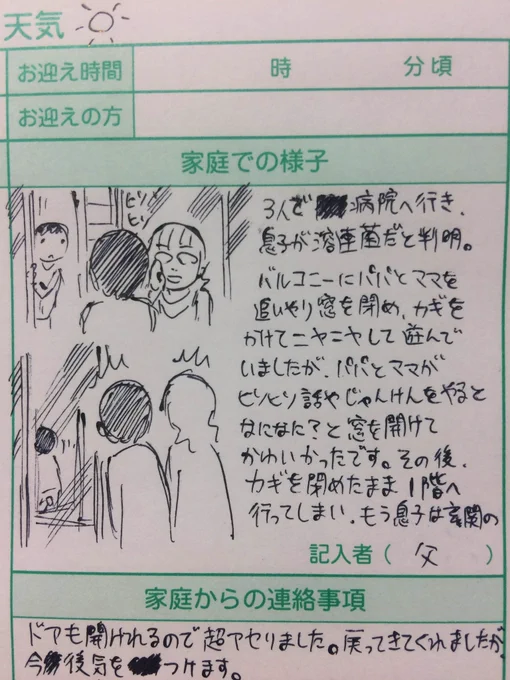 天気
お迎え時間 時 分頃
お迎えの方
家庭での様子
ヒソ
ヒソ
3人で病院へ行き、
息子が溶連菌だと判明。
バルコニーにパパとママを
追いやり窓を閉め、カギを
かけてニヤニヤして遊んで
いましたが、パパとママが
ヒソヒソ話やじゃんけんをやると
なになに？と窓を開けて
かわいかったです。その後、
カギを閉めたまま1階へ
行ってしまい、もう息子は玄関の
記入者（ 父 ）
家庭からの連絡事項
ドアも開けれるので超アセりました。戻ってきてくれましたが、
今後気をつけます。